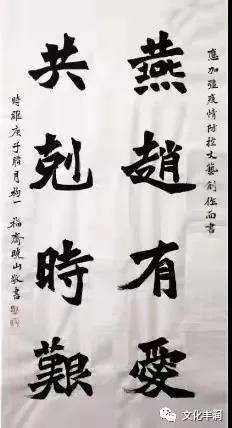 應加强疫情防控文藝創作而書
燕趙有愛
共剋時艱
時維庚子腊月初一
福齋曉山敬書
文化丰润